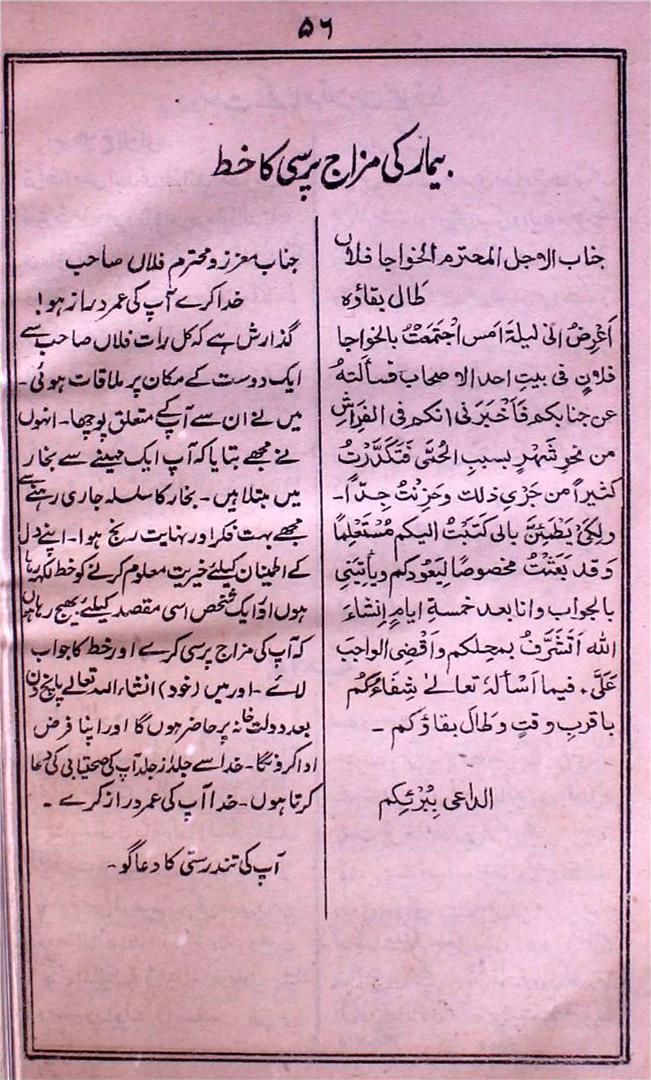 ۵۶
بیمار کی مزاج پرسی کا خط
جناب الاجل المحترم الخواجا فلان
طال بقاؤہ
اَعْرِضُ اِنی لیلۃ امس اجْتمَعتُ بالخواجا
فلانٍ فی بیتِ احد الاصحاب فسألتہُ
عن جنابکم فَاَخْبَرَنی انکم فی الفراشِ
من نحوِ شَہْرٍ بسببِ الحُمّٰی فَتَکَدَّرْتُ
کثیراً من جَرّیِ ذلت وحَزِنْتُ جِدّاً۔
ولِکَیْ یَطْمَئِنَّ بالی کَتَبْتُ الیکم مُسْتَعْلِماً
وَقد بَعَثْتُ مخصوصًا لِیَعُودکم ویأتینِی
بالجواب وانا بعد خمسۃِ ایامٍ اِنشاءَ
اللہ اَتَشَرَّفُ بمحلکم واَقْضِی الواجبَ
عَلَیَّ، فیما اَسْألہٗ تعالےٰ شِفاءَکُم
باقربِ وقتٍ وطَالَ بقاؤکم ۔
الداعی بِبُرْئِکم
جناب معزز و محترم فلاں صاحب
خدا کرے آپ کی عمر دراز ہو!
گذارش ہے کہ کل رات فلاں صاحب سے
ایک دوست کے مکان پر ملاقات ہوئی۔
میں نے ان سے آپ کے متعلق پوچھا۔ انہوں
نے مجھے بتایا کہ آپ ایک مہینے سے بخار
میں مبتلا ہیں۔ بخار کا سلسلہ جاری رہنے سے
مجھے بہت فکر اور نہایت رنج ہوا۔ اپنے دل
کے اطینان کیلئے خیریت معلوم کرنے کو خط لکھ رہا
ہوں اور ایک شخص اسی مقصد کیلئے بھیج رہا ہوں
کہ آپ کی مزاج پرسی کرے اور خط کا جواب
لائے۔ اور میں (خود) انشاء اللہ تعالےٰ پانچ دن
بعد دولت خانہ پر حاضر ہوں گا اور اپنا فرض
ادا کروں گا۔ خدا سے جلد از جلد آپ کی صحتیابی کی دعا
کرتا ہوں۔ خدا آپ کی عمر دراز کرے ۔
آپ کی تندرستی کا دعا گو۔